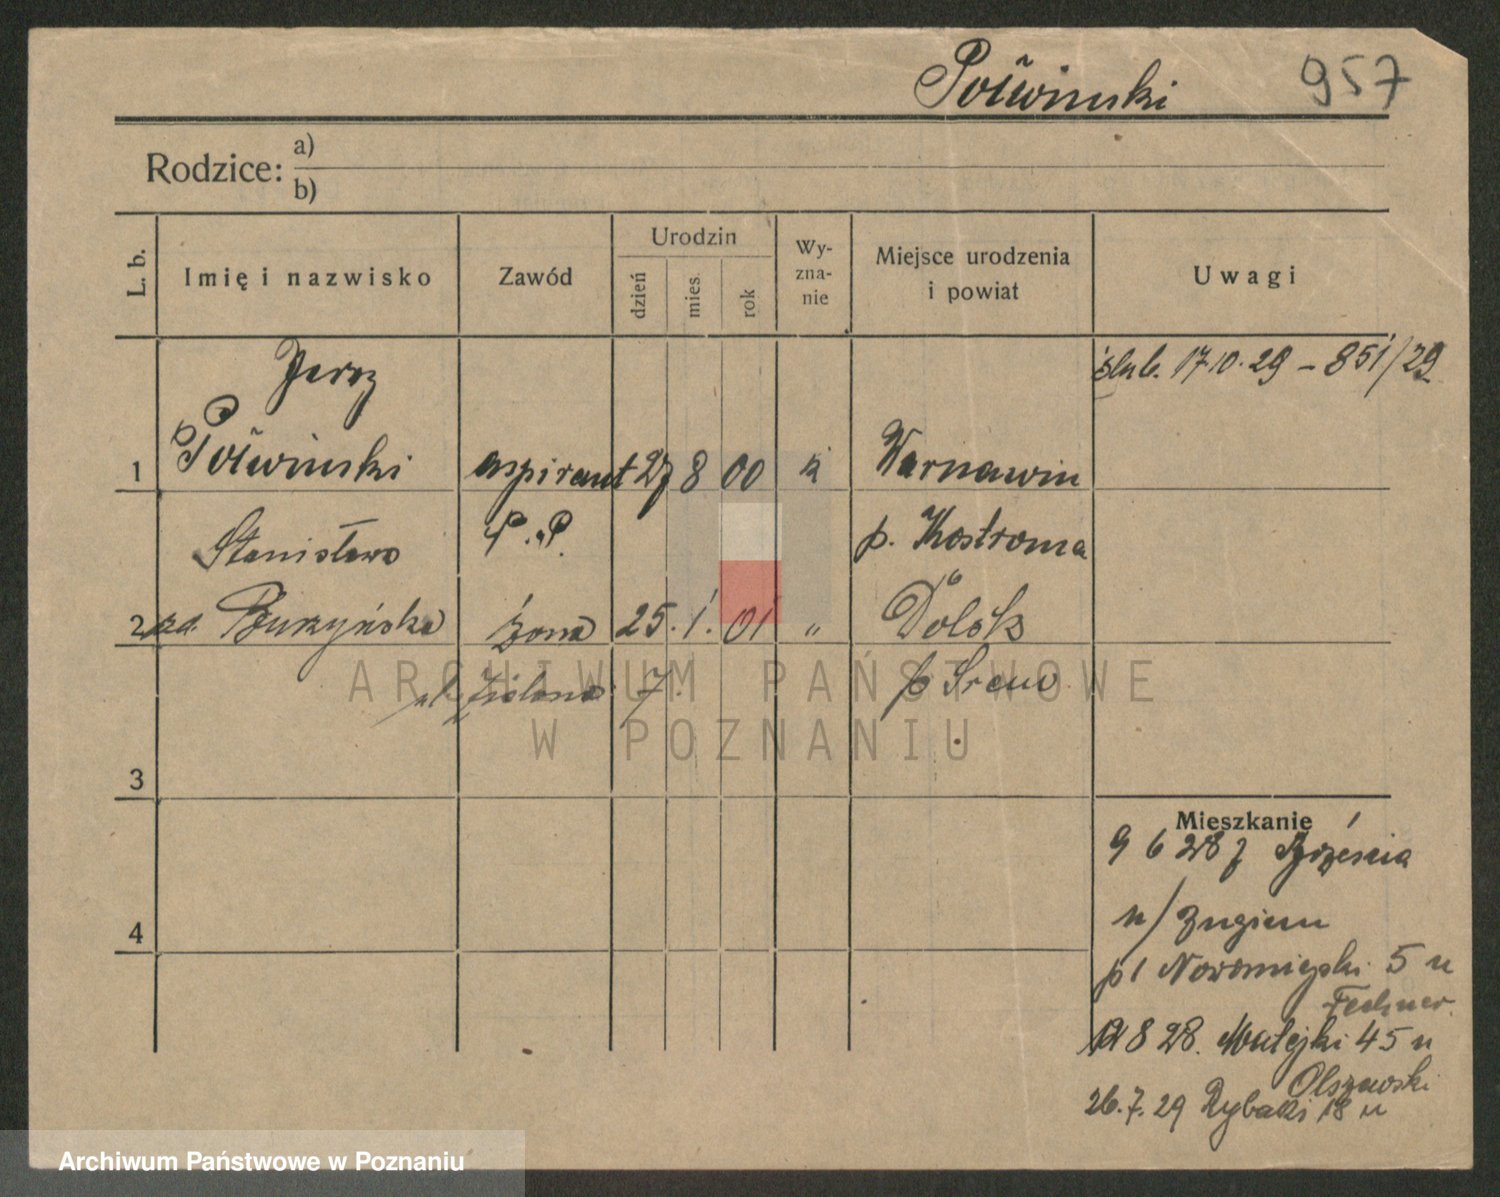 957
Rodzice: a)
b)
L. b.
Imię i nazwisko
Zawód
Urodzin
dzień
mies.
rok
Wy-
zna-
nie
Miejsce urodzenia
i powiat
Uwagi
Jerzy
ślub. 17.10.29 – 851/29
1 aspirant 27 8 00 k Warnawin
Stanisława P.P. p. Kostroma
2 żona 25. 1. 01 " Dolsk
ul. Zielona 7. p Śrem
3
4
Mieszkanie
9 6 28 z Brześcia
n/Bugiem
pl Nowomiejski 5 u
Fechner.
8 28. Matejki 45 u
Olszewski
26.7.29 Rybaki 18 u
ARCHIWUM PAŃSTWOWE
W POZNANIU
Archiwum Państwowe w Poznaniu